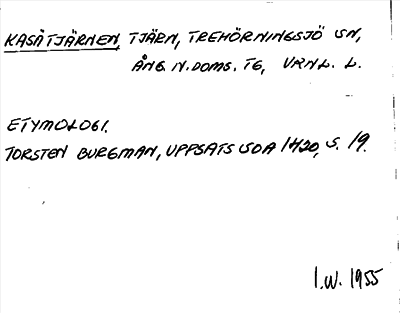 KASÅTJÄRNEN, TJÄRN, TREHÖRNINGSJÖ SN,
ÅNG. N. DOMS. TG, VRNL. L.
ETYMOLOGI.
TORSTEN BURGMAN, UPPSATS SOA 1420, S. 19.
I.W. 1955